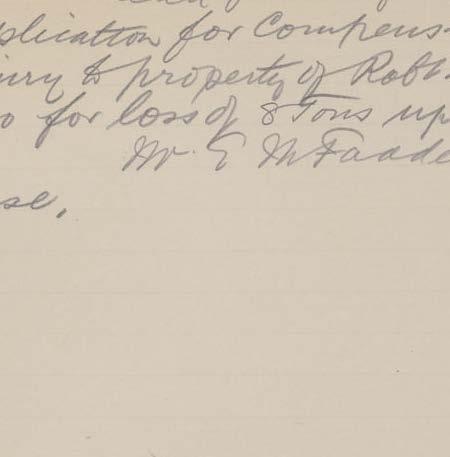 plication for Compens-
jury to property of Robt.
o for loss of 8 Tons up
Mr. E McFadde
se.